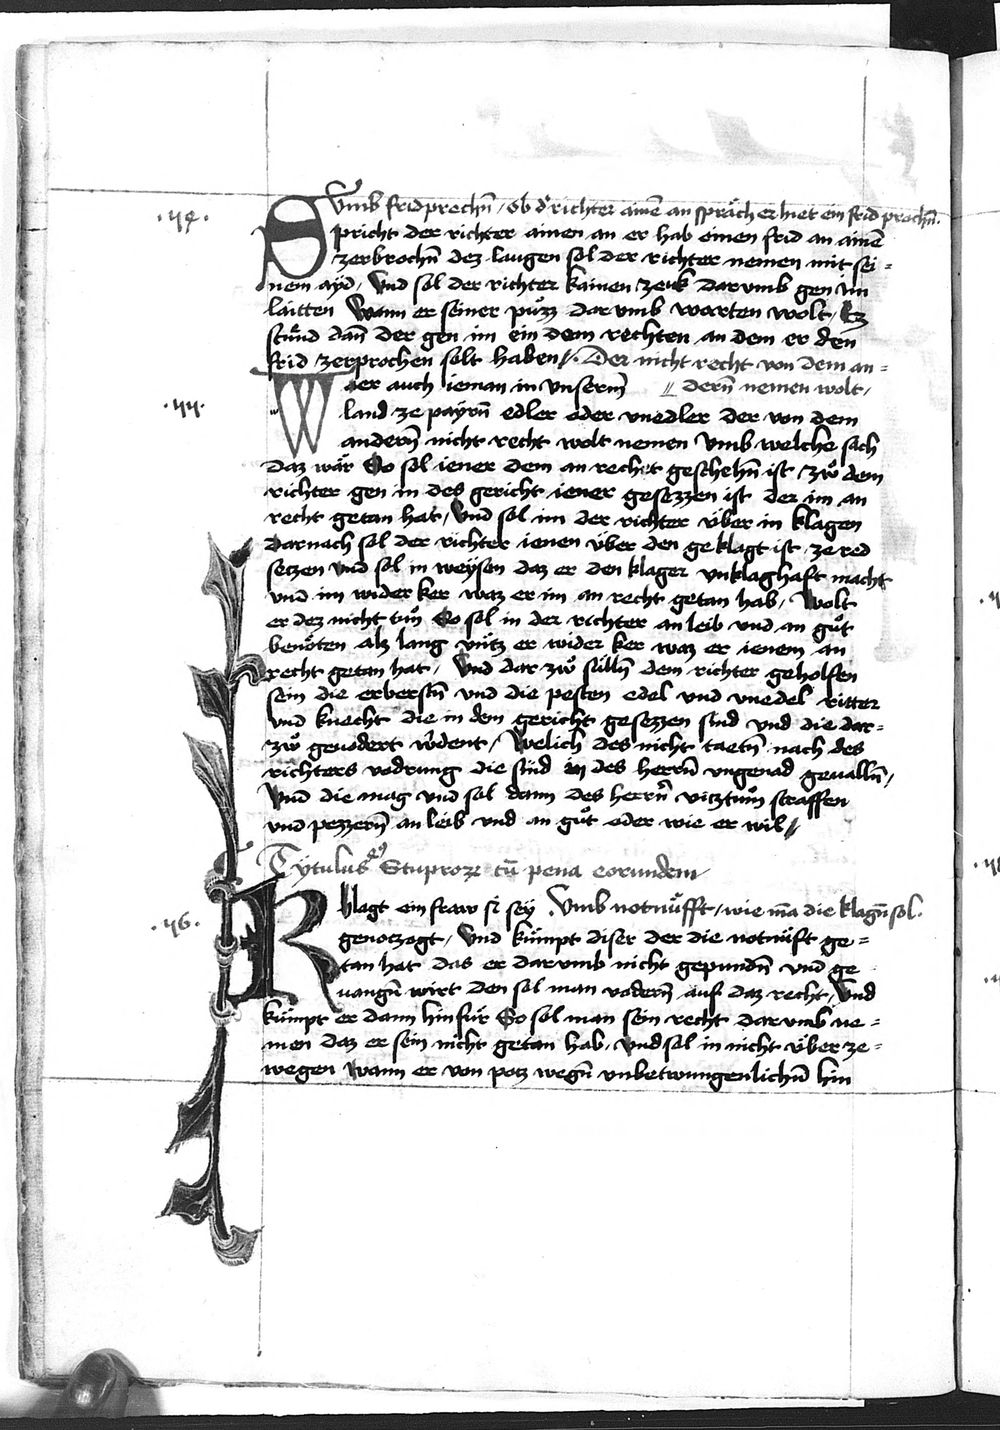 Vmb fridprechn̄ / ob d' richter ainē an spräch er hiet ein frid prochn̄ .
· 54 ·
Spricht der richter ainen an er hab einen frid an ainē
zerbrochn̄ dez laugen sol der richter nemen mit sei =
nem ayd / Vnd sol der richter kainen zeuk darvmb gen im
laitten Wann er seiner půzz darvmb warten wolt / Ez
stůnd dañ der gen im ein dem rechten an dem er den
frid zerprochen solt haben // Der nicht recht von dem an =
Waer auch ieman in vnserm̄ // dern̄ nemen wolt /
· 55 ·
land ze payrn̄ edler oder vnedler der von dem
andern̄ nicht recht wolt nemen Vmb welche sach
daz wär So sol iener dem an rechet geschehn̄ ist zwͦ dem
richter gen in des gericht iener gesezzen ist der im an
recht getan hat / Vnd sol im der richter über in klagen
darnach sol der richter ienen über den geklagt ist ze red
setzen vnd sol in weysen daz er den klager vnklaghaft macht
vnd im wider ker waz er im an recht getan hab / Wolt
er dez nicht tuͦn So sol in der richter an leib vnd an guͦt
benöten als lang vntz er wider ker waz er ienem an
recht getan hat / Vnd dar zwͦ sülln̄ dem richter geholfen
sein die erberstn̄ vnd die pesten edel vnd vnedel ritter
vnd knecht die in dem gericht gesezzen sind vnd die dar =
zwͦ geuodert w'dent / Welich des nicht taetn̄ nach des
richters vodrung die sind in des herrn̄ vngenad geualln̄ /
Vnd die mag vnd sol dann des herrn̄ vicztuͦm straffen
vnd pezzern̄ an leib vnd an guͦt oder wie er wil //
Tytulus Stuprorz cū pena eorundem
Klagt ein fraw si sey . Vmb notnüfft / wie mā die klagn̄ sol .
· 56 ·
genotzogt / Vnd kümpt diser der die notnüft ge =
tan hat das er darvmb nicht gepundn̄ vnd ge
uangn̄ wirt den sol man vodern̄ auf daz recht / Vnd
kümpt er dann hinfür So sol man sein recht darvmb ne =
men daz er sein nicht getan hab / vnd sol in nicht über ze =
wegen Wann er von potz wegn̄ vnbetwungenlichn̄ hin